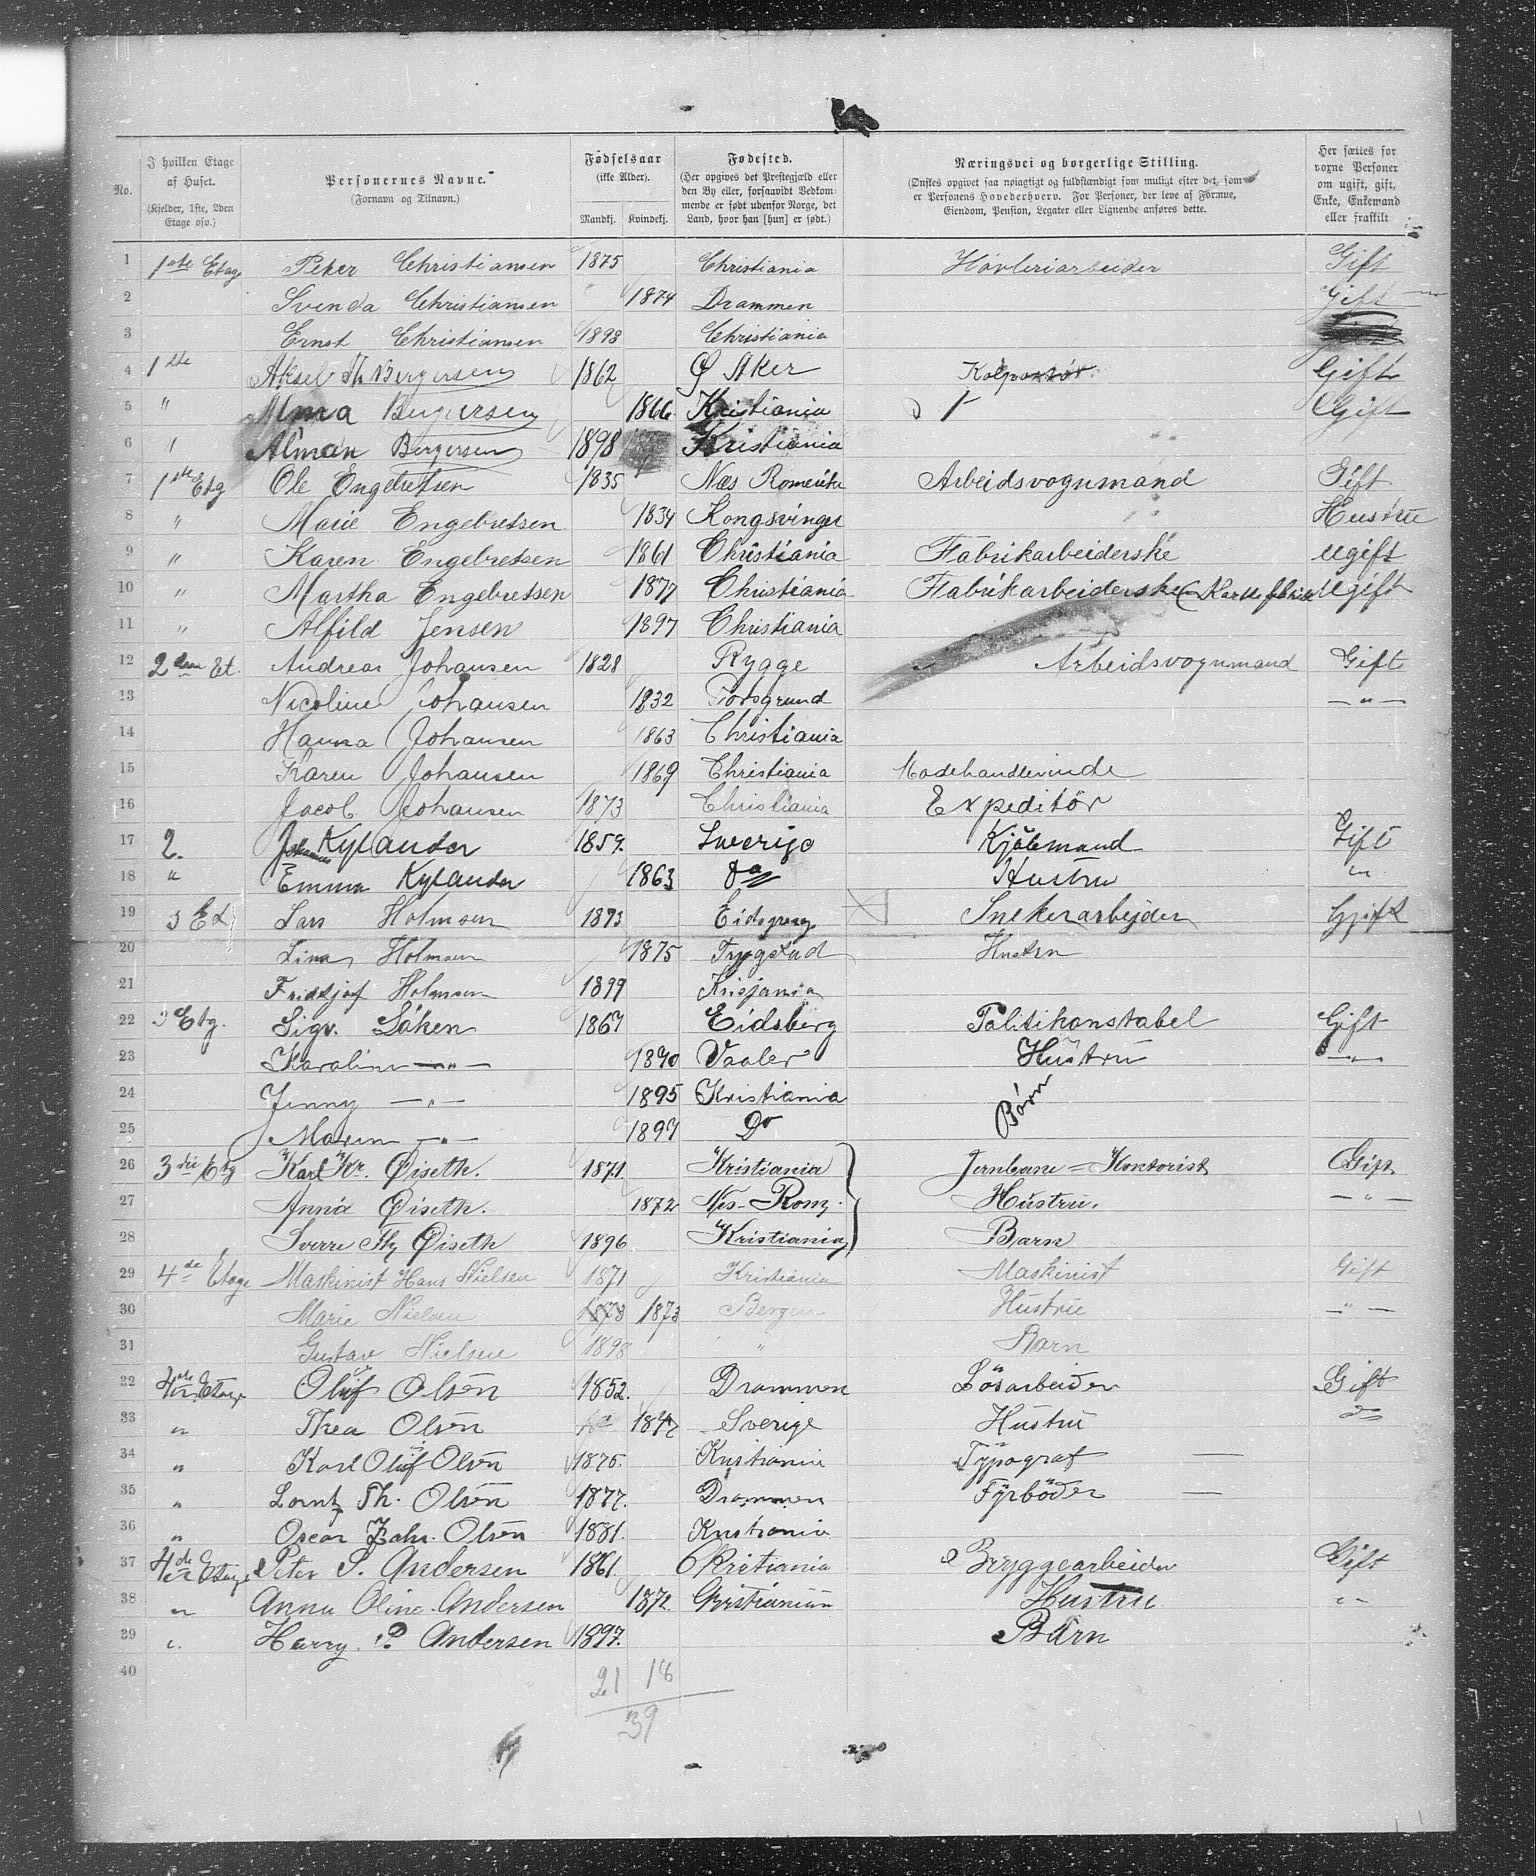 No. | I hvilken Etage af Huset. (Kjelder, 1ste, 2den Etage osv.) | Personernes Navne. (Fornavn og Tilnavn.) | Fødselsaar (ikke Alder). Mandkj. Kvindekj. | Fødested. (Her opgives det Prestegjæld eller den By eller, forsaavidt Vedkommende er født udenfor Norge, det Land, hvor han [hun] er født.) | Næringsvei og borgerlige Stilling. (Ønskes opgivet saa nøiagtigt og fuldstændigt som muligt efter det, som er Personens Hovederhverv. For Personer, der leve af Formue, Eiendom, Pension, Legater eller Lignende anføres dette. | Her sættes for voxne Personer om ugift, gift, Enke, Enkemand eller fraskilt
1 1ste Etage Peter Christiansen 1875 Christiania Høvleriarbeider Gift
2 Svenda Christiansen 1874 Drammen Gift
3 Ernst Christiansen 1898 Christiania
4 1ste Aksel Th Bergersen 1862 Ø Aker Kolportør Gift
5 " Alma Bergersen 1866 Kristiania Gift
6 " Alman Bergersen 1898 Kristiania
7 1ste Etg Ole Engebretsen 1835 Næs Romerike Arbeidsvognmand Gift
8 " Marie Engebretsen 1834 Kongsvinger Hustru
9 " Karen Engebretsen 1861 Christiania Fabrikarbeiderske ugift
10 " Martha Engebretsen 1877 Christiania Fabrikarbeiderske ugift
11 " Alfild Jensen 1897 Christiania
12 2den Et. Andreas Johansen 1828 Rygge Arbeidsvognmand Gift
13 Nicoline Johansen 1832 Porsgrund — " —
14 Hanna Johansen 1863 Christiania
15 Karen Johansen 1869 Christiania Modehandlerinde
16 Jacob Johansen 1873 Christiania Expeditör
17 2. Johannes Kylander 1859. Sverige Kjøbmand Gift
18 " Emma Kylander 1863 do Hustru "
19 3 Et Lars Holmsen 1873 Eidsberg Snekerarbejder Gjift
20 Lina Holmsen 1875 Trygstad Hustru
21 Fridtjof Holmsen 1899 Krisjania
22 3 Etg. Sigv. Löken 1867 Eidsberg Politikonstabel Gift
23 Karoline — " — 1870 Vaaler Hustru — " —
24 Jenny — " — 1895 Kristiania Börn
25 Maren — " — 1897 Do
26 3die Etg Karl Kr. Øiseth. 1871. Kristiania Jernbane-Kontorist Gift
27 Anna Øiseth. 1872 Nes-Rom. Hustru. — " —
28 Sverre Th Øiseth 1896 Kristiania Barn
29 4de Etage Maskinist Hans Nielsen 1871 Kristiania Maskinist Gift
30 Marie Nielsen 1873 1873 Bergen Hustru — " —
31 Gustav Nielsen 1898 " Barn
32 4de Etage Oluf Olsen 1852. Drammen Lösarbeider Gift
33 " Thea Olsen Sverige Hustru do
34 " Karl Oluf Olsen 1875. Kristiania Typograf —
35 " Lorntz Th. Olsen 1877. Drammen Fyrböder —
36 " Oscar Joha. Olsen 1881. Kristiania
37 4de Etage Peter P. Andersen 1861. Kristiania Bryggearbeider Gift
38 " Anna Oline Andersen 1872. Kristiania Hustru "
39 " Harry P Andersen 1897. Barn
40
21 18
39